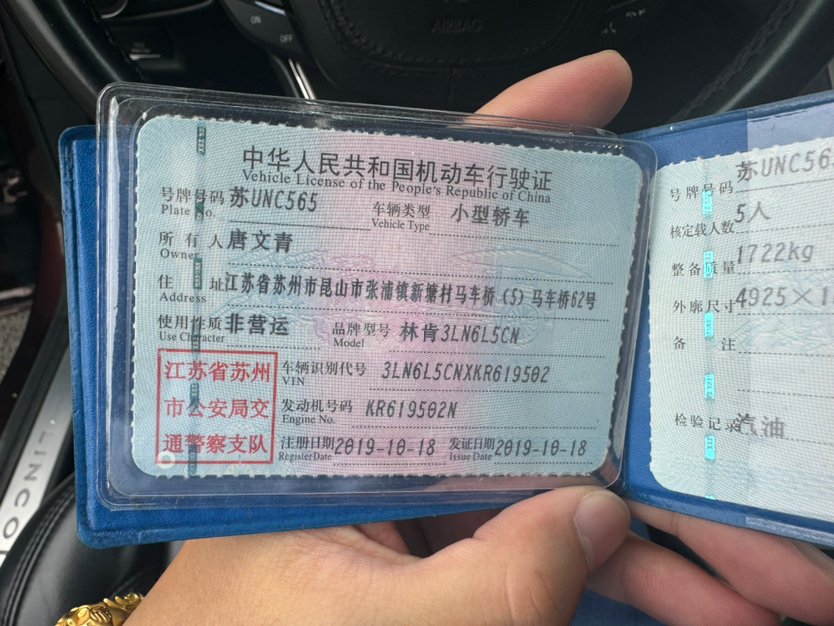 ON
OFF
AIRBAG
中华人民共和国机动车行驶证
Vehicle License of the People's Republic of China
号牌号码 苏UNC565 车辆类型 小型轿车
Plate No. Vehicle Type
所有人 唐文青
Owner
住址 江苏省苏州市昆山市张浦镇新塘村马车桥(5)马车桥62号
Address
使用性质 非营运 品牌型号 林肯3LN6L5CN
Use Character Model
江苏省苏州
市公安局交
通警察支队
车辆识别代号 3LN6L5CNXKR619502
VIN
发动机号码 KR619502N
Engine No.
注册日期 2019-10-18 发证日期 2019-10-18
Register Date Issue Date
号牌号码 苏UNC56
核定载人数 5人
整备质量 1722kg
外廓尺寸 4925×1
备注
检验记录 汽油
LINCO